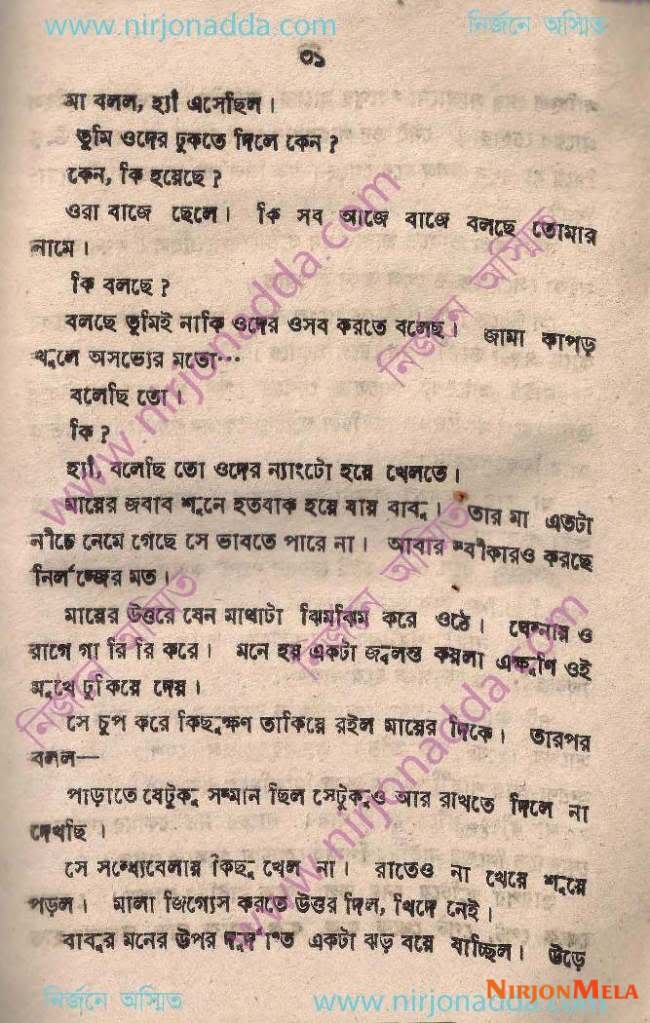 www.nirjonadda.com নির্জনে অস্মিত
৩১
মা বলল, হ্যাঁ এসেছিল।
তুমি ওদের ঢুকতে দিলে কেন?
কেন, কি হয়েছে?
ওরা বাজে ছেলে। কি সব আজে বাজে বলছে তোমার
নামে।
কি বলছে?
বলছে তুমিই নাকি ওদের ওসব করতে বলেছ। জামা কাপড়
খুলে অসভ্যের মতো···
বলেছি তো।
কি?
হ্যাঁ, বলেছি তো ওদের ন্যাংটো হয়ে খেলতে।
মায়ের জবাব শুনে হতবাক হয়ে যায় বাবু। তার মা এতটা
নীচে নেমে গেছে সে ভাবতে পারে না। আবার স্বীকারও করছে
নির্লজ্জের মত।
মায়ের উত্তরে যেন মাথাটা ঝিমঝিম করে ওঠে। ঘেন্নায় ও
রাগে গা রি রি করে। মনে হয় একটা জ্বলন্ত কয়লা এক্ষুণি ওই
মুখে ঢুকিয়ে দেয়।
সে চুপ করে কিছুক্ষণ তাকিয়ে রইল মায়ের দিকে। তারপর
বলল—
পাড়াতে যেটুকু সম্মান ছিল সেটুকুও আর রাখতে দিলে না
দেখছি।
সে সন্ধ্যেবেলায় কিছু খেল না। রাতেও না খেয়ে শুয়ে
পড়ল। মালা জিগ্যেস করতে উত্তর দিল, খিদে নেই।
বাবুর মনের উপর দুর্দান্ত একটা ঝড় বয়ে যাচ্ছিল। উড়ে
NIRJONMELA
নির্জনে অস্মিত www.nirjonadda.com
www.nirjonadda.com
নির্জনে অস্মিত
নির্জনে অস্মিত
নির্জনে অস্মিত
www.nirjonadda.com